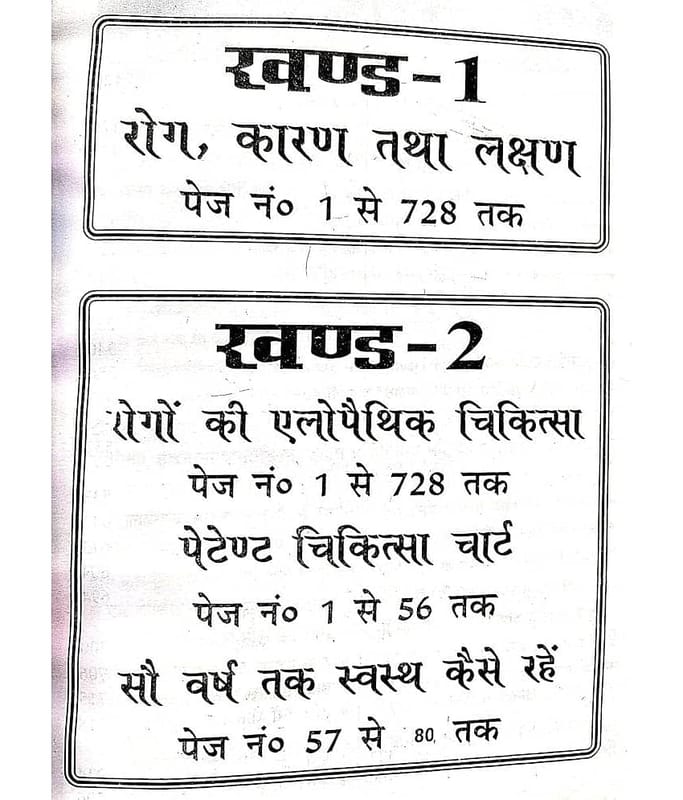 खण्ड-1
रोग, कारण तथा लक्षण
पेज नं० 1 से 728 तक
खण्ड-2
रोगों की एलोपैथिक चिकित्सा
पेज नं० 1 से 728 तक
पेटेण्ट चिकित्सा चार्ट
पेज नं० 1 से 56 तक
सौ वर्ष तक स्वस्थ कैसे रहें
पेज नं० 57 से 80 तक